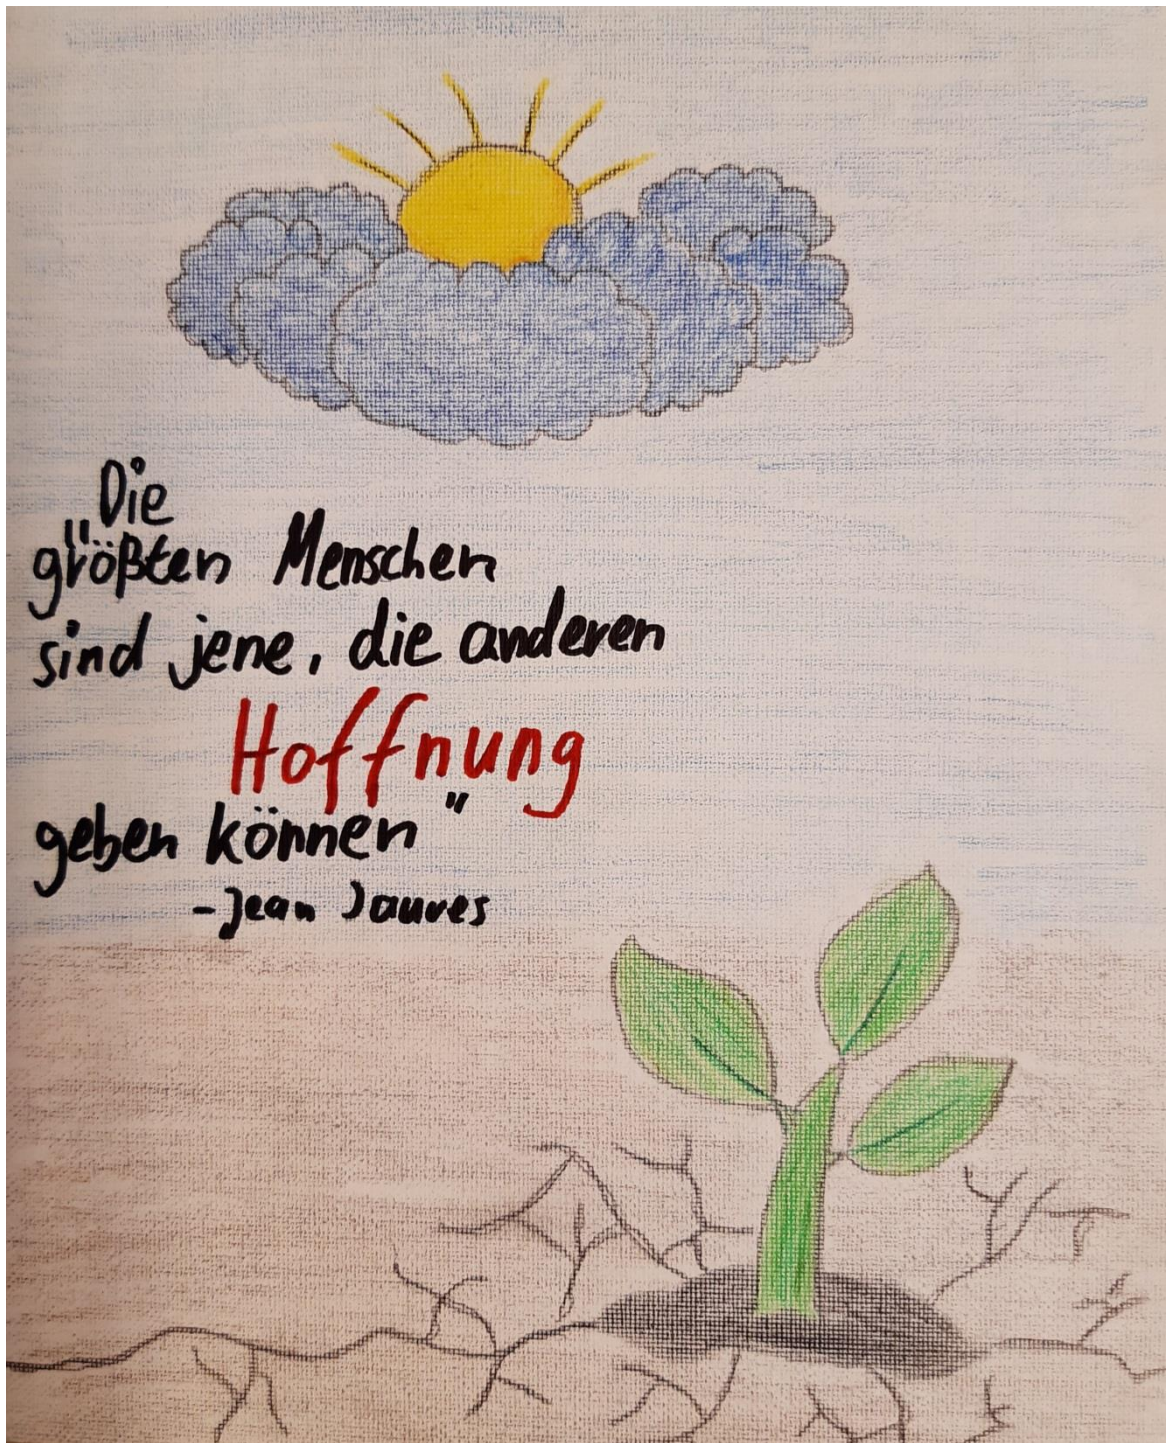 „Die
größten Menschen
sind jene, die anderen
Hoffnung
geben können"
-Jean Jaures